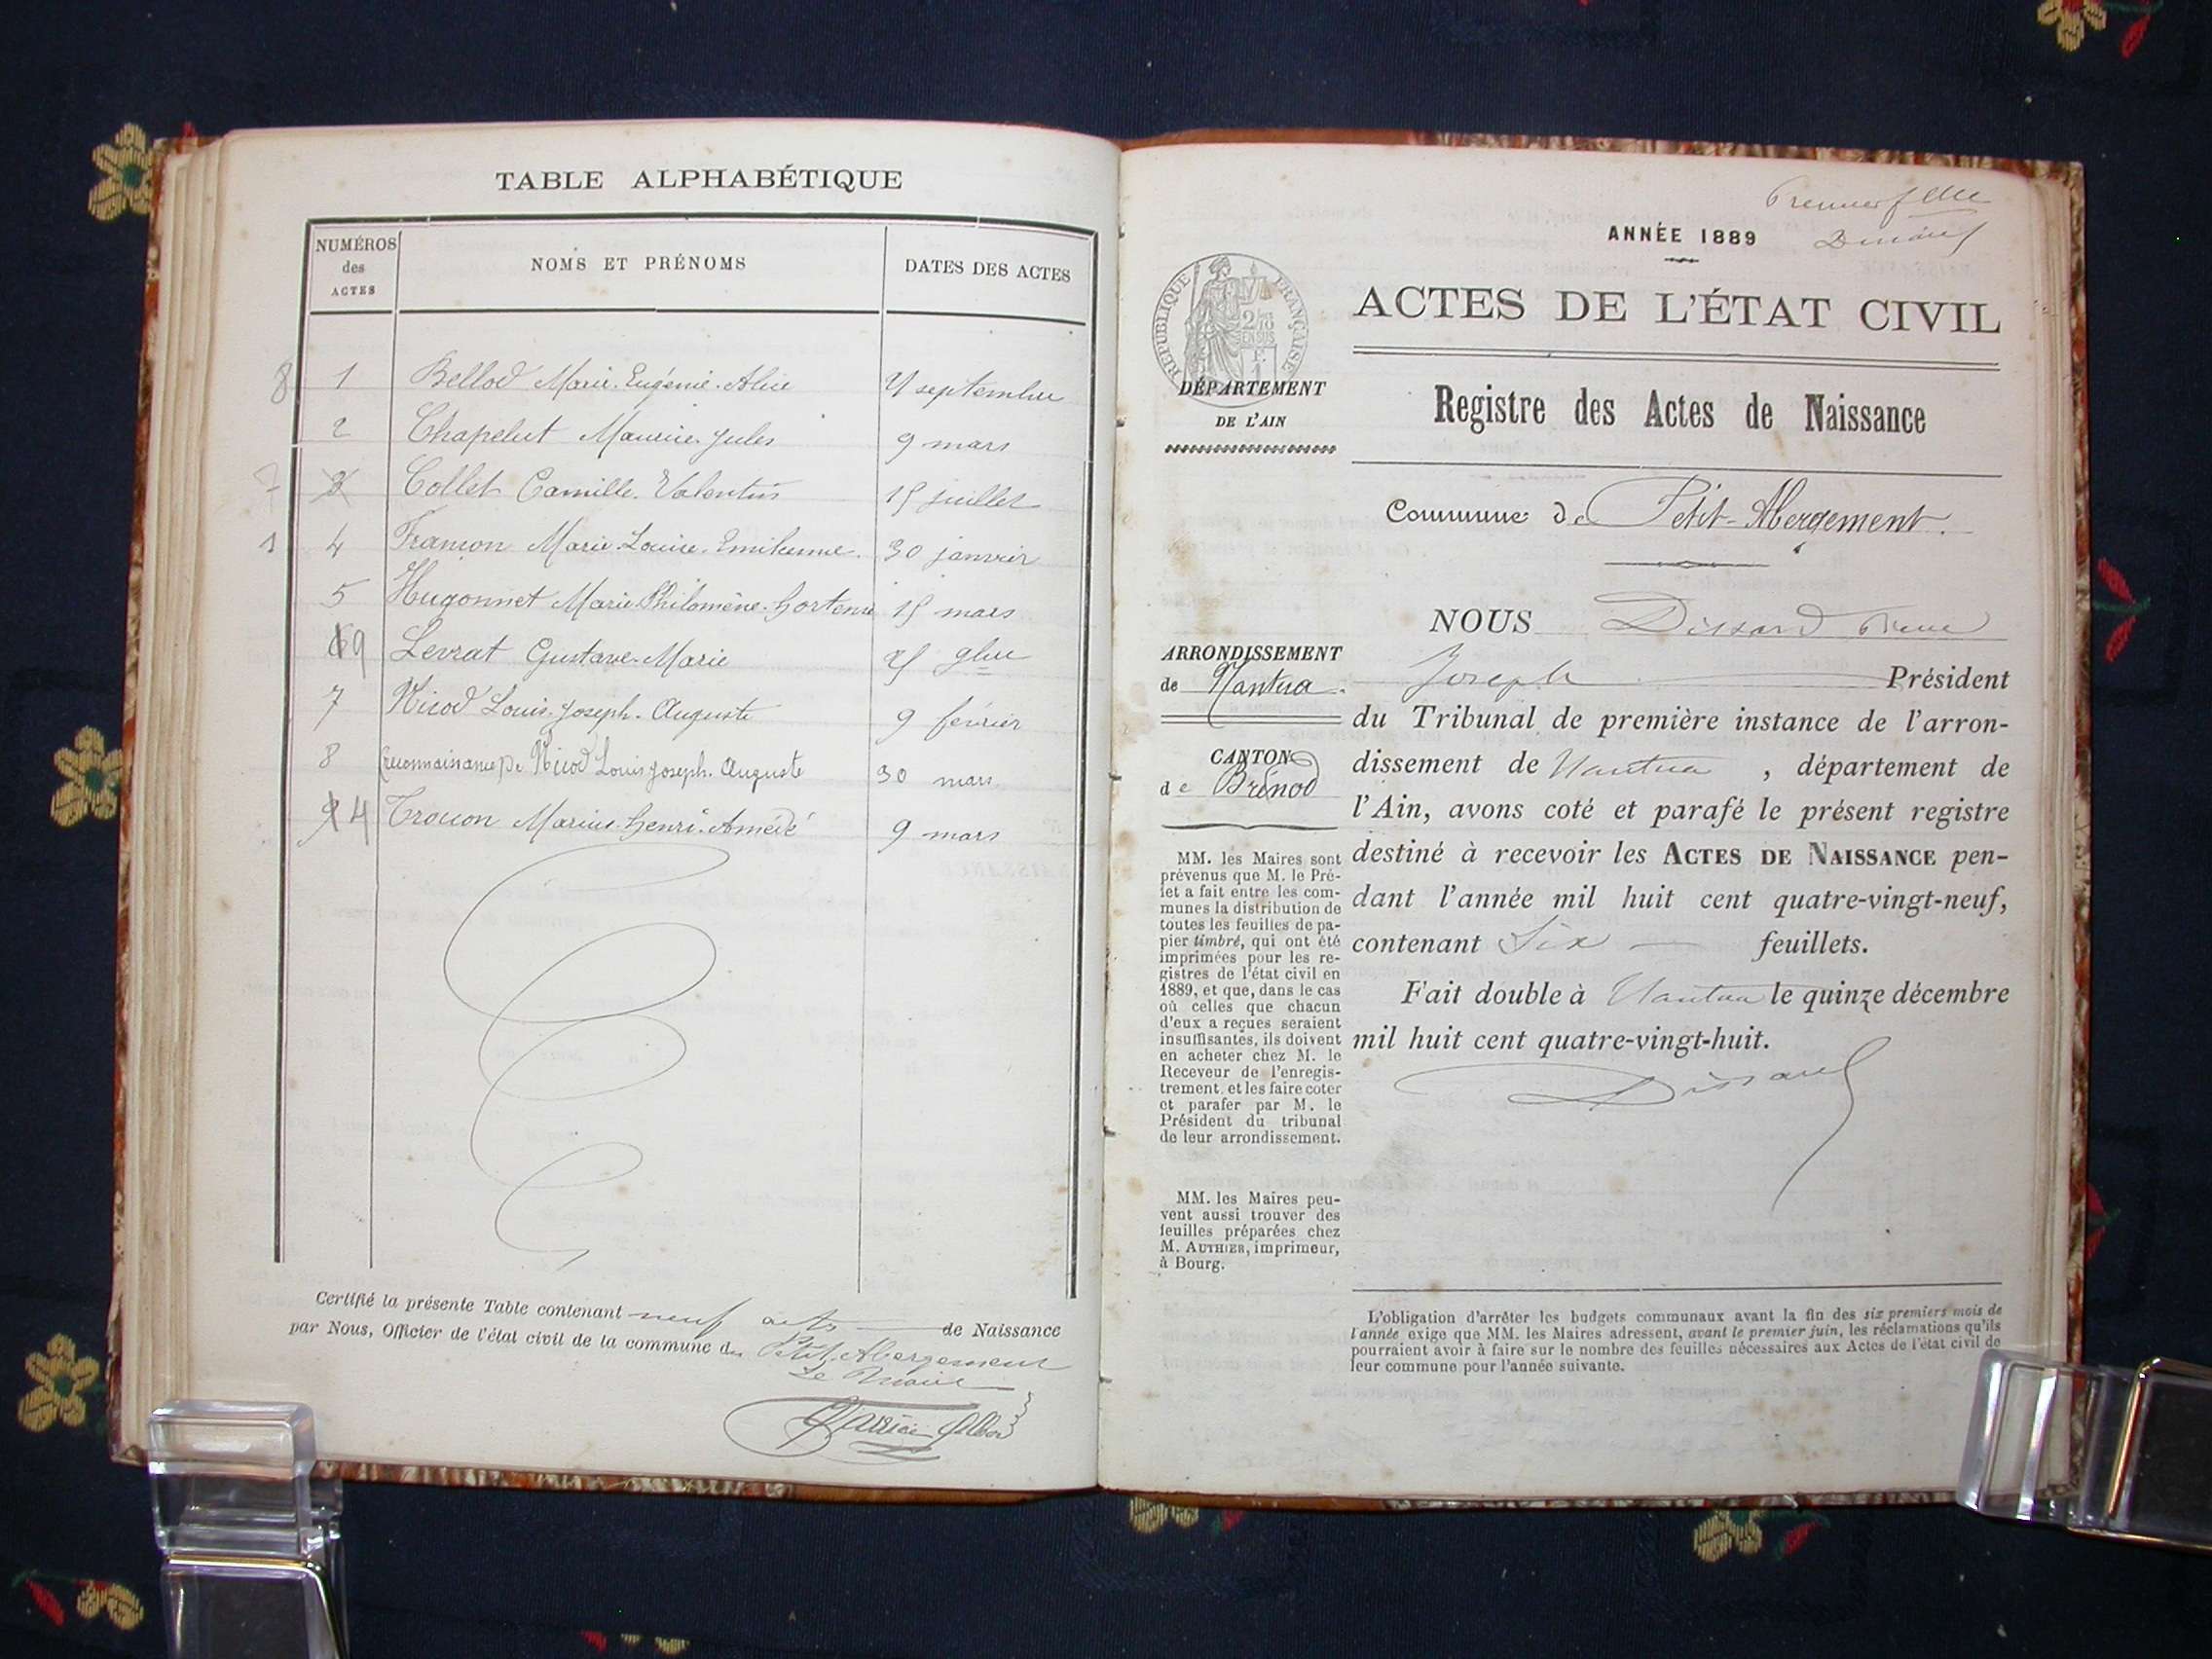 TABLE ALPHABÉTIQUE
NUMÉROS
des
ACTES
NOMS ET PRÉNOMS
DATES DES ACTES
8 1 Bellod Marie-Eugénie-Alice septembre
2 Chapelut Maurice-Jules 9 mars
7 3 Collet Camille-Valentin 15 juillet
1 4 Françon Marie-Louise-Emilienne 30 janvier
5 Hugonnet Marie-Philomène-hortense 15 mars
9 Levrat Gustave-Marie 9bre
7 Nicod Louis-Joseph-Auguste 9 février
8 (reconnaissance de Nicod Louis Joseph-Auguste 30 mars
4 Marius-henri-Amédé 9 mars
Certifié la présente Table contenant neuf actes de Naissance
par Nous, Officier de l'état civil de la commune du Petit Abergement
Le Maire
Premier flle
ANNÉE 1889
ACTES DE L'ÉTAT CIVIL
RÉPUBLIQUE FRANÇAISE
2/10
EN SUS
DÉPARTEMENT
DE L'AIN
Registre des Actes de Naissance
Commune de Petit-Abergement.
ARRONDISSEMENT
de Nantua.
CANTON
de Brénod
MM. les Maires sont
prévenus que M. le Pré-
fet a fait entre les com-
munes la distribution de
toutes les feuilles de pa-
pier timbré, qui ont été
imprimées pour les re-
gistres de l'état civil en
1889, et que, dans le cas
où celles que chacun
d'eux a reçues seraient
insuffisantes, ils doivent
en acheter chez M. le
Receveur de l'enregis-
trement, et les faire coter
et parafer par M. le
Président du tribunal
de leur arrondissement.
MM. les Maires peu-
vent aussi trouver des
feuilles préparées chez
M. AUTHIER, imprimeur,
à Bourg.
NOUS Dissard Pierre
Joseph Président
du Tribunal de première instance de l'arron-
dissement de Nantua , département de
l'Ain, avons coté et parafé le présent registre
destiné à recevoir les ACTES DE NAISSANCE pen-
dant l'année mil huit cent quatre-vingt-neuf,
contenant Six feuillets.
Fait double à Nantua le quinze décembre
mil huit cent quatre-vingt-huit.
Dissard
L'obligation d'arrêter les budgets communaux avant la fin des six premiers mois de
l'année exige que MM. les Maires adressent, avant le premier juin, les réclamations qu'ils
pourraient avoir à faire sur le nombre des feuilles nécessaires aux Actes de l'état civil de
leur commune pour l'année suivante.